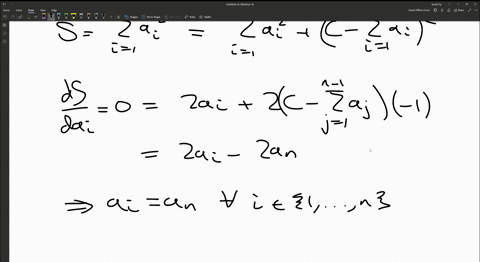 S = Σ_{i=1} a_i² = Σ_{i=1} a_i² + (C - Σ_{i=1} a_i)²
dS/da_i = 0 = 2a_i + 2(C - Σ_{j=1}^{n-1} a_j)(-1)
= 2a_i - 2a_n
⇒ a_i = a_n ∀ i ∈ {1, ..., n}